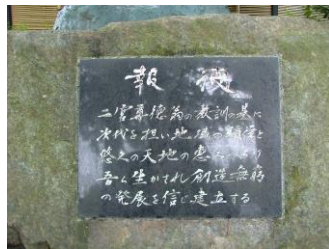 報徳
二宮尊徳翁の教訓の基に
次代を担い地域の
悠久の天地の恵
吾ら生かされ創造無窮
の発展を信じ建立する